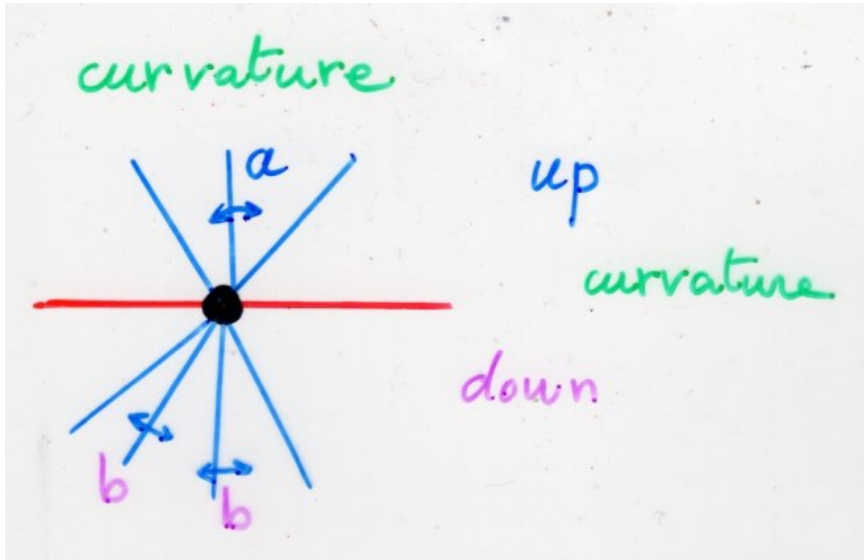 curvature
a
up
curvature
down
b
b